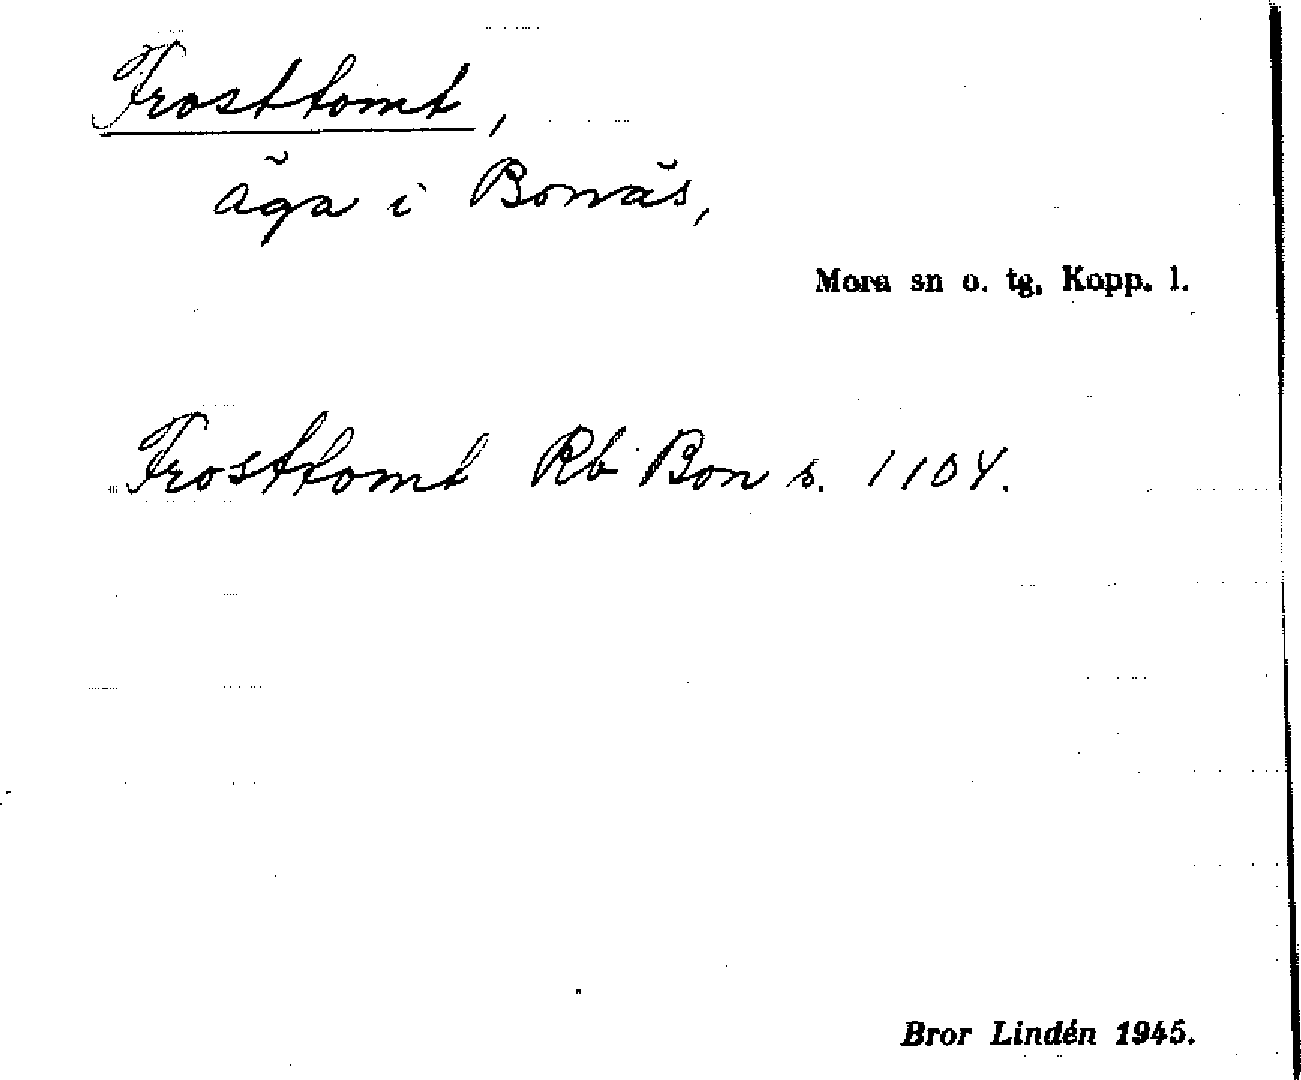 Frosttomt,
äga i Bonäs,
Mora sn o. tg. Kopp. l.
Frosttomt Rb Bon s. 1104.
Bror Lindén 1945.